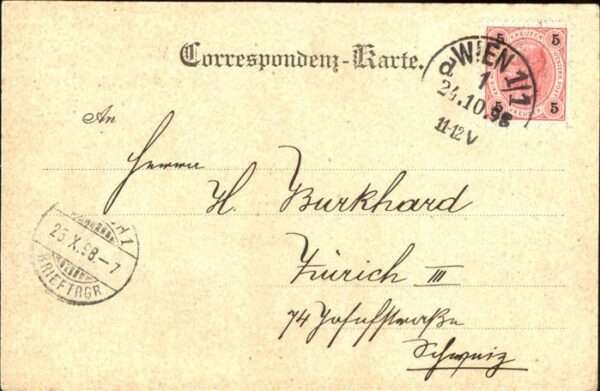 Correspondenz-Karte.
5 5
WIEN 1/1
1
24.10.98
11-12V
5 5
An
Herrn
H. Burkhard
Zürich III
74 Josefstraße
Schweiz
25.X.98-7
BRIEFTRGR